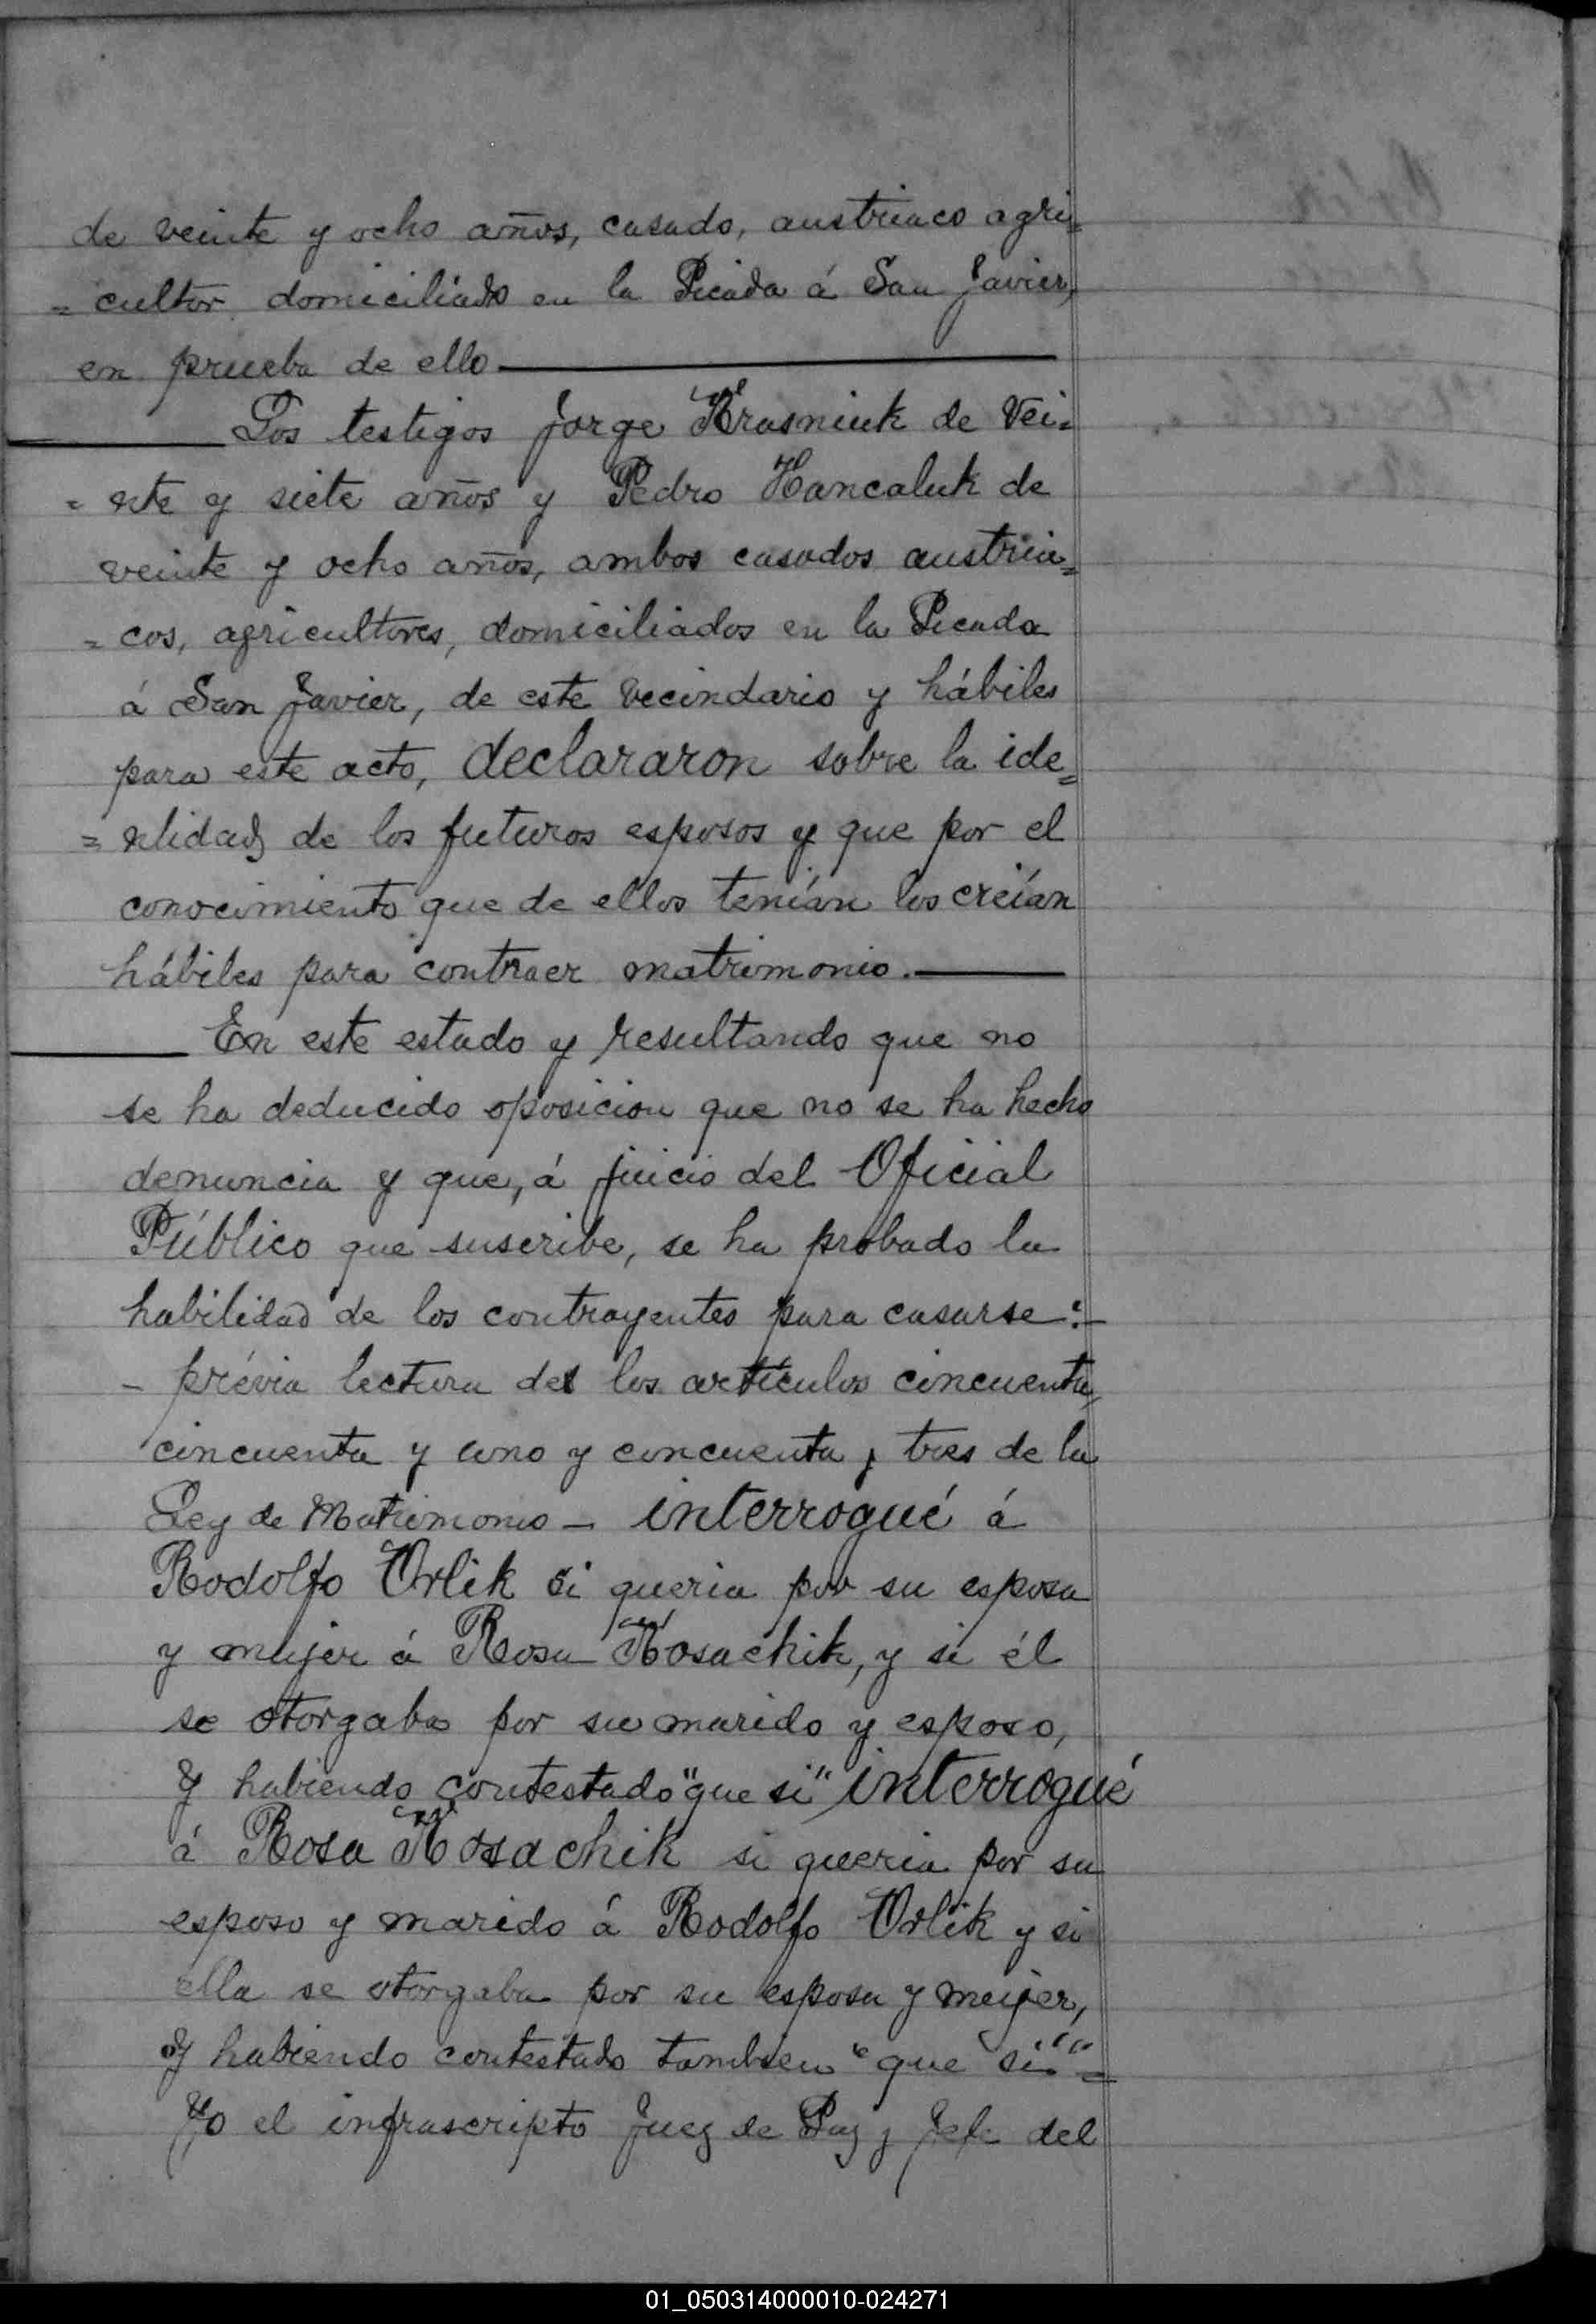 de veinte y ocho años, casado, austriaco agri=
= cultor domiciliado en la Picada á San Javier,
en prueba de ello
Los testigos Jorge Krasniuk de Vei=
= nte y siete años y Pedro Hancaluk de
veinte y ocho años, ambos casados austria=
= cos, agricultores, domiciliados en la Picada
á San Javier, de este vecindario y hábiles
para este acto, declararon sobre la ide=
= ntidad de los futuros esposos y que por el
conocimiento que de ellos tenían los creían
hábiles para contraer matrimonio.
En este estado y resultando que no
se ha deducido oposicion que no se ha hecho
denuncia y que, á juicio del Oficial
Público que suscribe, se ha probado la
habilidad de los contrayentes para casarse:-
- prévia lectura de los artículos cincuenta,
cincuenta y uno y cincuenta y tres de la
Ley de Matrimonio - interrogué á
Rodolfo Orlik si queria por su esposa
y mujer á Rosa Kosachik, y si él
se otorgaba por su marido y esposo,
y habiendo contestado "que si" interrogué
á Rosa Kosachik si queria por su
esposo y marido á Rodolfo Orlik y si
ella se otorgaba por su esposa y mujer,
y habiendo contestado tambien "que si" =
Yo el infrascripto Juez de Paz y Jefe del
01_050314000010-024271